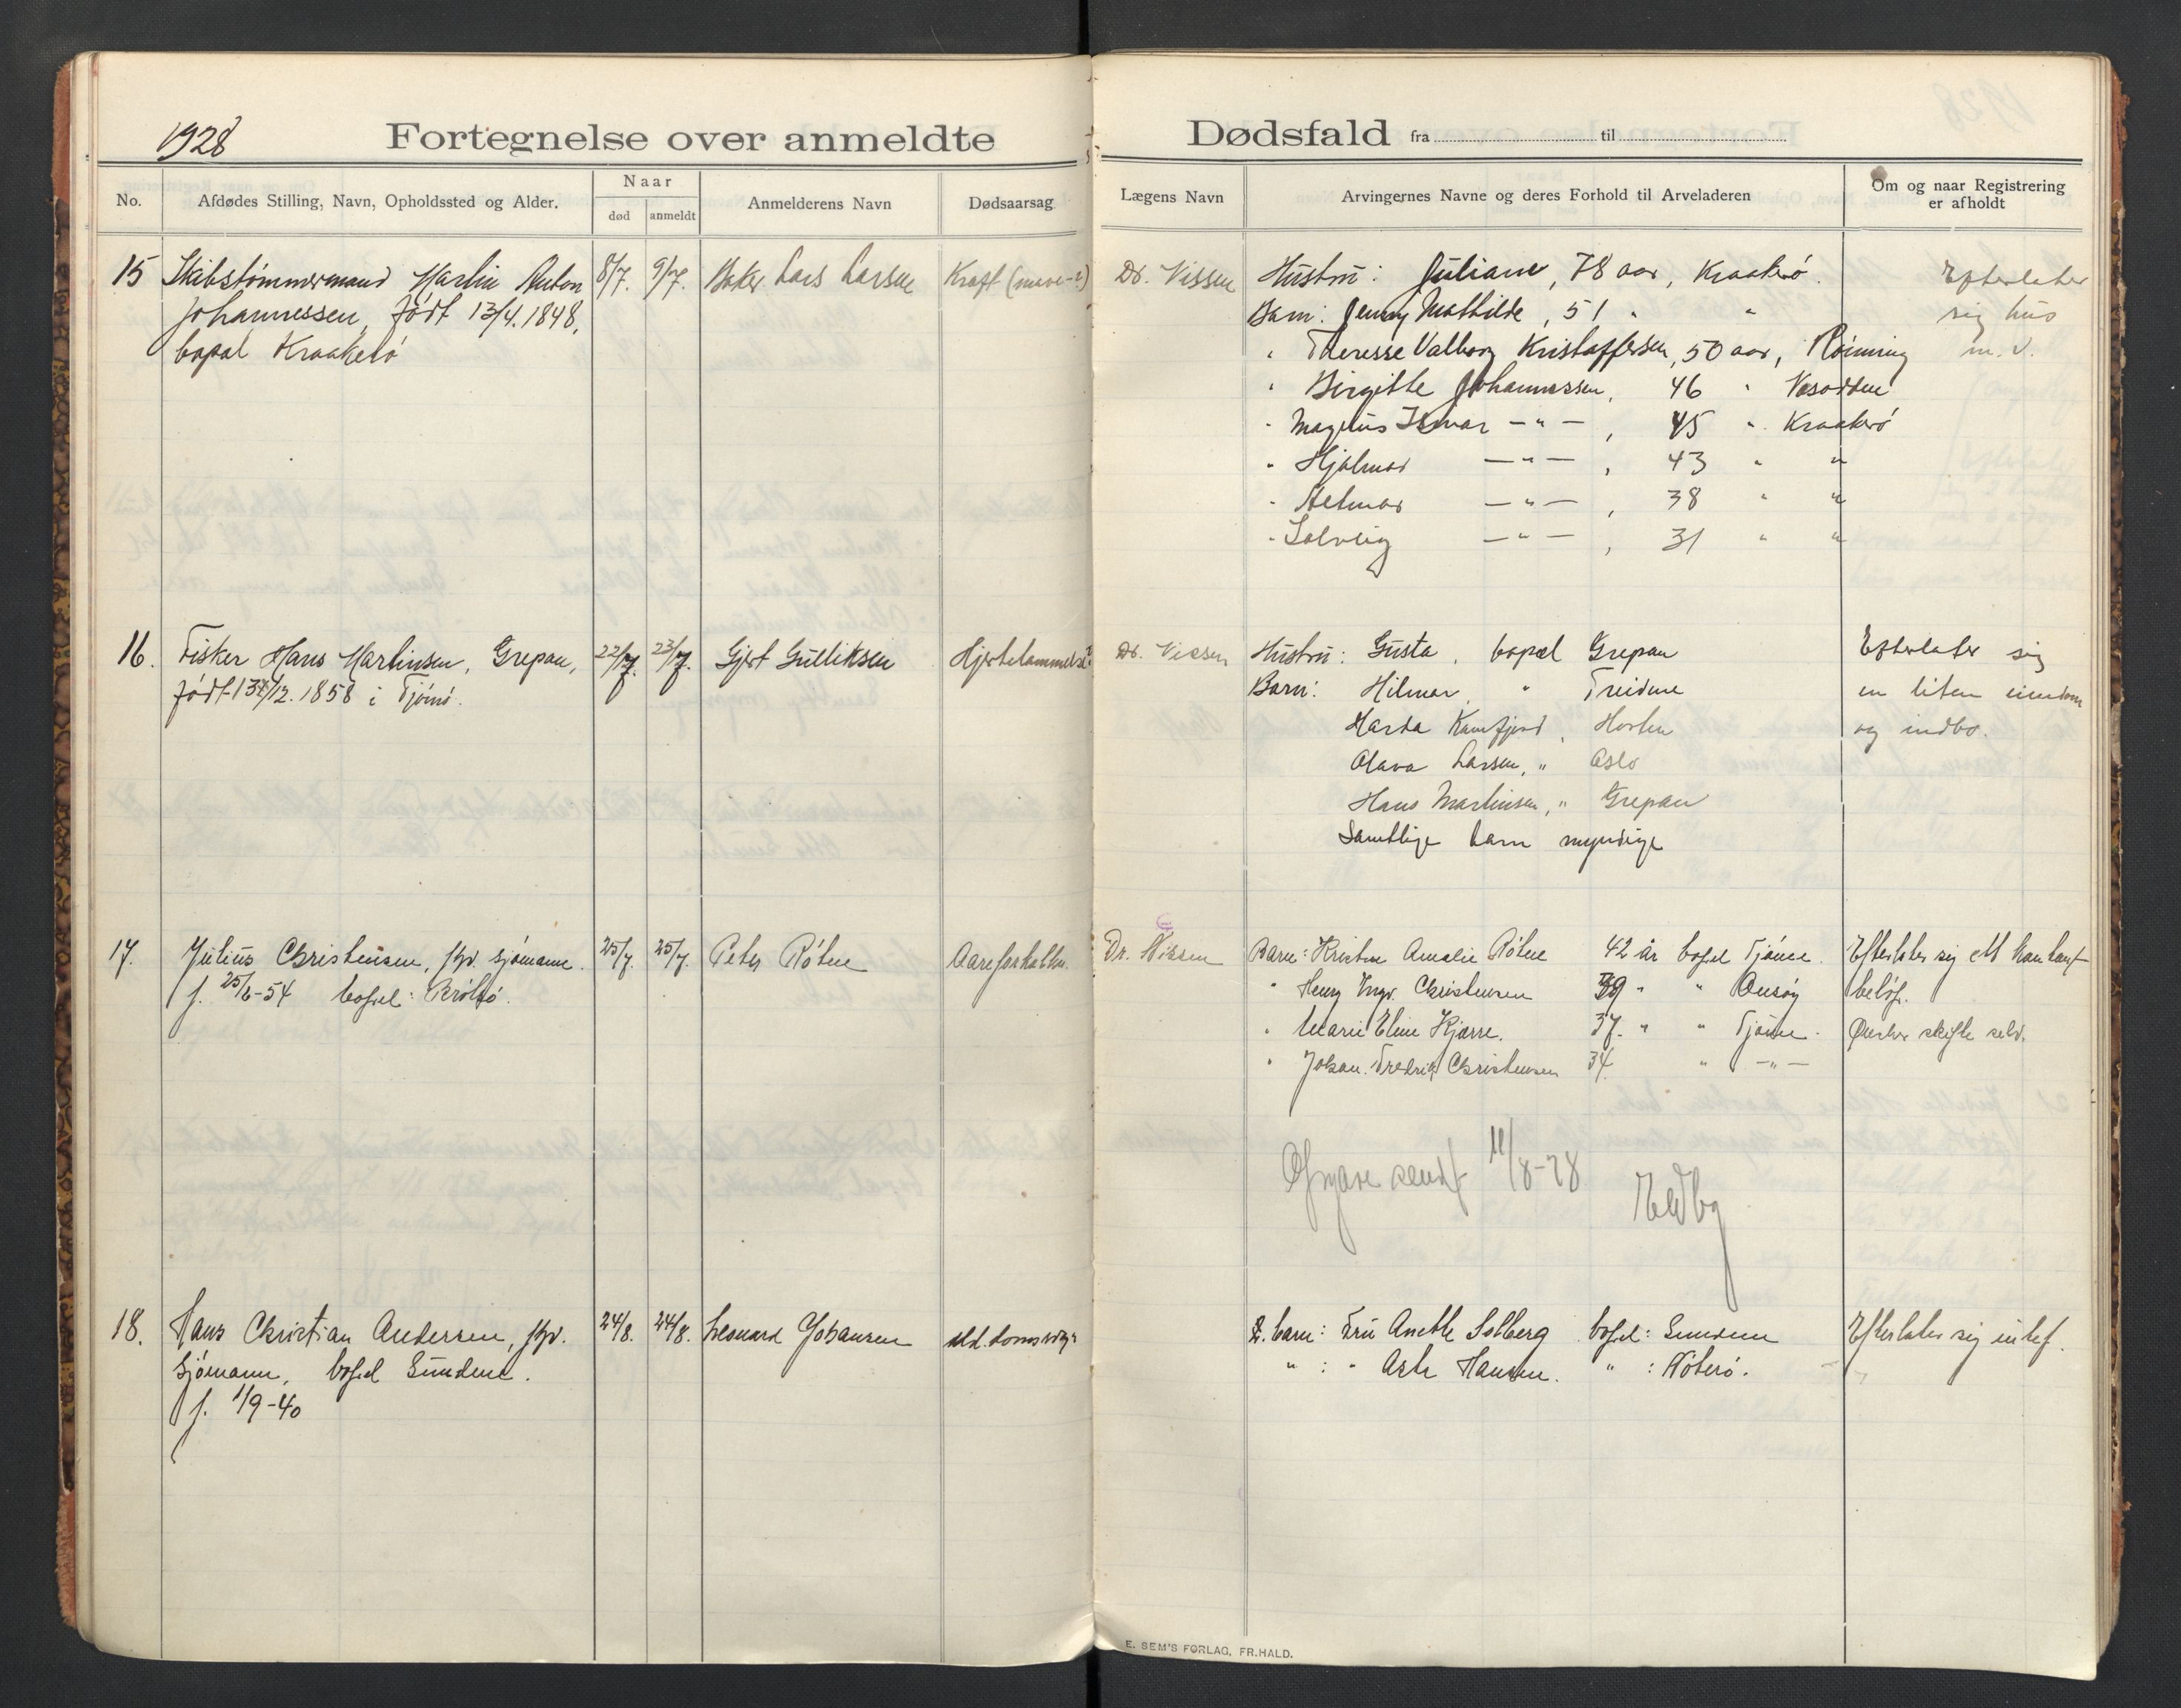 1928
Fortegnelse over anmeldte Dødsfald fra til
No. Afdødes Stilling, Navn, Opholdssted og Alder. Naar død anmeldt Anmelderens Navn Dødsaarsag Lægens Navn Arvingernes Navne og deres Forhold til Arveladeren Om og naar Registrering er afholdt
15 Skibstømmermand Martin Anton 8/7. 9/7. Baker Lars Larsen Kræft (mave-?) Dr. Nissen Hustru: Juliane, 78 aar, Kraakerø. Efterlater
Johannessen, født 13/4. 1848, Barn: Jenny Mathilde, 51 " " sig hus
bopæl Kraakerø " Theresse Valborg Kristoffersen, 50 aar, Rønning m. v.
" Birgitte Johannessen, 46 " Nesodden
" Magnus Ismar — " — , 45 " Kraakerø
" Hjalmar — " — , 43 " "
" — " — , 38 " "
" Solveig — " — , 31 " "
16. Fisker Hans Martinsen, Grepan, 22/7. 23/7. Gjert Gulliksen Hjertelammelse? Dr. Nissen Hustru: Gusta, bopæl Grepan Efterlater sig
født 13/12. 1858 i Tjømø. Barn: Hilmar, " Treidene en liten eiendom
Marta, Horten og indbo.
Olava Larsen, " Oslo
Hans Martinsen, " Grepan
Samtlige barn myndige
17. Julius Christensen, fhv. sjømann. 25/7. 25/7. Peter Røtne Aareforkalkn. Dr. Nissen Barn: Kristine Amalie Røtne 42 år bopel Tjøme. Efterlater sig ett kontant
f. 25/6-54 bopel: Brøtsø. " Henry Ingv. Christensen 39 " " Onsøy beløp.
" Marie Eline Kjærre. 37. " " Tjøme. Ønsker skifte selv.
" Johan Fredrik Christensen 34. " — " —
Opgave sendt 11/8-28
18. Hans Christian Andersen, fhv. 24/8. 24/8. Leonard Johansen ald.domssvag. 2. barn: Fru Anette Solberg bopel: Sundene Efterlater sig intet.
sjømann, bopel Sundene. " : " Hansen. " : Nøterø.
f. 1/9-40
E. SEM'S FORLAG, FR.HALD.